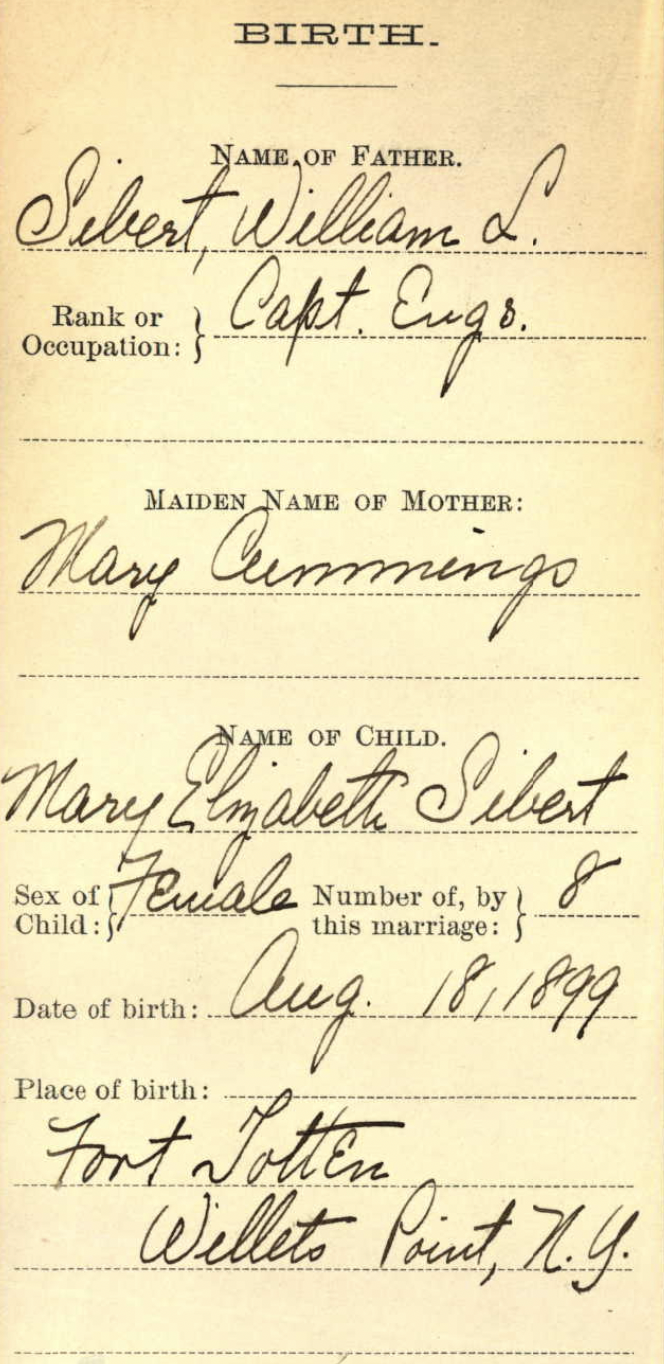 BIRTH.
NAME OF FATHER.
Sibert, William L.
Rank or Occupation: } Capt. Engs.
MAIDEN NAME OF MOTHER:
Mary Cummings
NAME OF CHILD.
Mary Elizabeth Sibert
Sex of Child: { Female Number of, by this marriage: } 8
Date of birth: Aug. 18, 1899
Place of birth:
Fort Totten
Willets Point, N.Y.